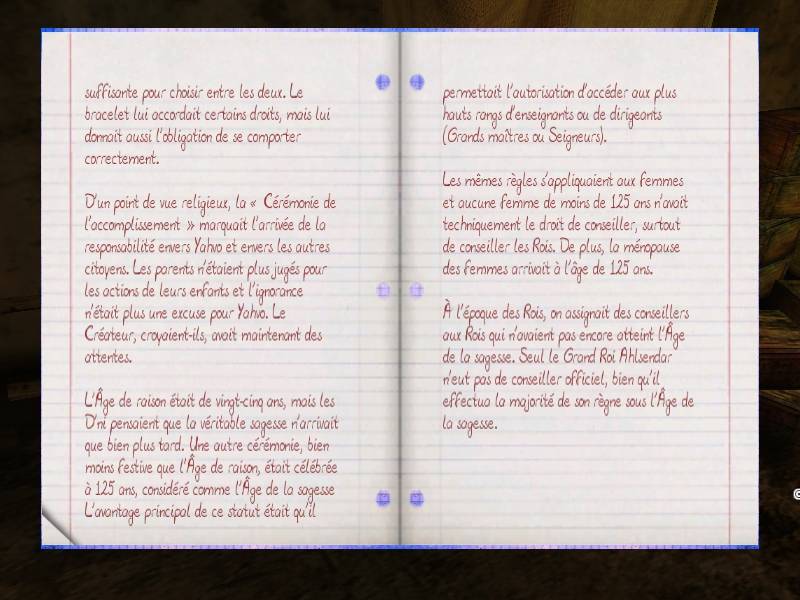 suffisante pour choisir entre les deux. Le
bracelet lui accordait certains droits, mais lui
donnait aussi l'obligation de se comporter
correctement.
D'un point de vue religieux, la « Cérémonie de
l'accomplissement » marquait l'arrivée de la
responsabilité envers Yahvo et envers les autres
citoyens. Les parents n'étaient plus jugés pour
les actions de leurs enfants et l'ignorance
n'était plus une excuse pour Yahvo. Le
Créateur, croyaient-ils, avait maintenant des
attentes.
L'Âge de raison était de vingt-cinq ans, mais les
D'ni pensaient que la véritable sagesse n'arrivait
que bien plus tard. Une autre cérémonie, bien
moins festive que l'Âge de raison, était célébrée
à 125 ans, considéré comme l'Âge de la sagesse
L'avantage principal de ce statut était qu'il
permettait l'autorisation d'accéder aux plus
hauts rangs d'enseignants ou de dirigeants
(Grands maîtres ou Seigneurs).
Les mêmes règles s'appliquaient aux femmes
et aucune femme de moins de 125 ans n'avait
techniquement le droit de conseiller, surtout
de conseiller les Rois. De plus, la ménopause
des femmes arrivait à l'âge de 125 ans.
À l'époque des Rois, on assignait des conseillers
aux Rois qui n'avaient pas encore atteint l'Âge
de la sagesse. Seul le Grand Roi Ahlsendar
n'eut pas de conseiller officiel, bien qu'il
effectua la majorité de son règne sous l'Âge de
la sagesse.
©